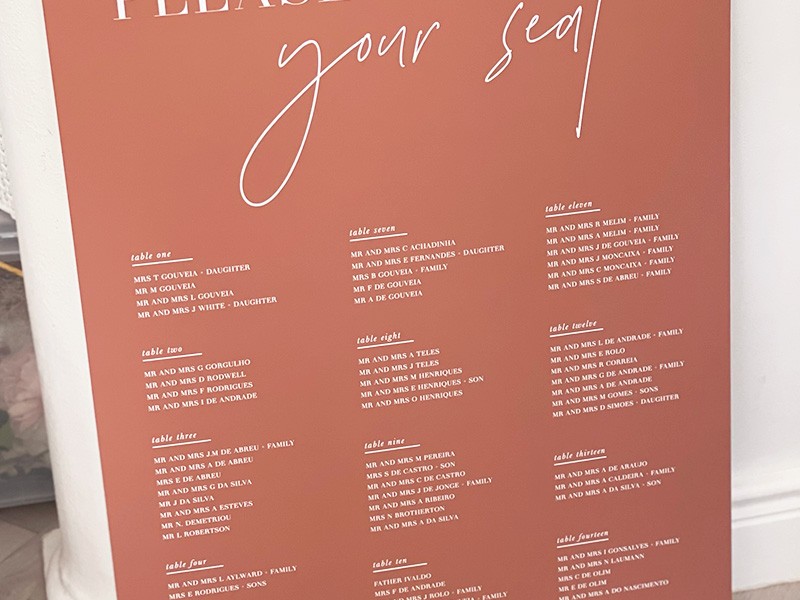 PLEASE
your seat
table one
MRS T GOUVEIA - DAUGHTER
MR M GOUVEIA
MR AND MRS L GOUVEIA
MR AND MRS J WHITE - DAUGHTER
table two
MR AND MRS G GORGULHO
MR AND MRS D RODWELL
MR AND MRS F RODRIGUES
MR AND MRS I DE ANDRADE
table three
MR AND MRS J.M DE ABREU - FAMILY
MR AND MRS A DE ABREU
MRS E DE ABREU
MR AND MRS G DA SILVA
MR J DA SILVA
MR AND MRS A ESTEVES
MR N. DEMETRIOU
MR L ROBERTSON
table four
MR AND MRS L AYLWARD - FAMILY
MRS E RODRIGUES - SONS
table seven
MR AND MRS C ACHADINHA
MR AND MRS E FERNANDES - DAUGHTER
MRS B GOUVEIA - FAMILY
MR F DE GOUVEIA
MR A DE GOUVEIA
table eight
MR AND MRS A TELES
MR AND MRS J TELES
MR AND MRS M HENRIQUES
MR AND MRS E HENRIQUES - SON
MR AND MRS O HENRIQUES
table nine
MR AND MRS M PEREIRA
MRS S DE CASTRO - SON
MR AND MRS C DE CASTRO
MR AND MRS J DE JONGE - FAMILY
MR AND MRS A RIBEIRO
MRS N BROTHERTON
MR AND MRS A DA SILVA
table ten
FATHER IVALDO
MRS F DE ANDRADE
MR AND MRS J ROLO - FAMILY
table eleven
MR AND MRS R MELIM - FAMILY
MR AND MRS A MELIM - FAMILY
MR AND MRS J DE GOUVEIA - FAMILY
MR AND MRS J MONCAIXA - FAMILY
MR AND MRS C MONCAIXA - FAMILY
MR AND MRS S DE ABREU - FAMILY
table twelve
MR AND MRS L DE ANDRADE - FAMILY
MR AND MRS E ROLO
MR AND MRS R CORREIA
MR AND MRS G DE ANDRADE - FAMILY
MR AND MRS A DE ANDRADE
MR AND MRS M GOMES - SONS
MR AND MRS D SIMOES - DAUGHTER
table thirteen
MR AND MRS A DE ARAUJO
MR AND MRS A CALDEIRA - FAMILY
MR AND MRS A DA SILVA - SON
table fourteen
MR AND MRS I GONSALVES - FAMILY
MR AND MRS N LAUMANN
MRS C DE OLIM
MR E DE OLIM
MR AND MRS A DO NASCIMENTO